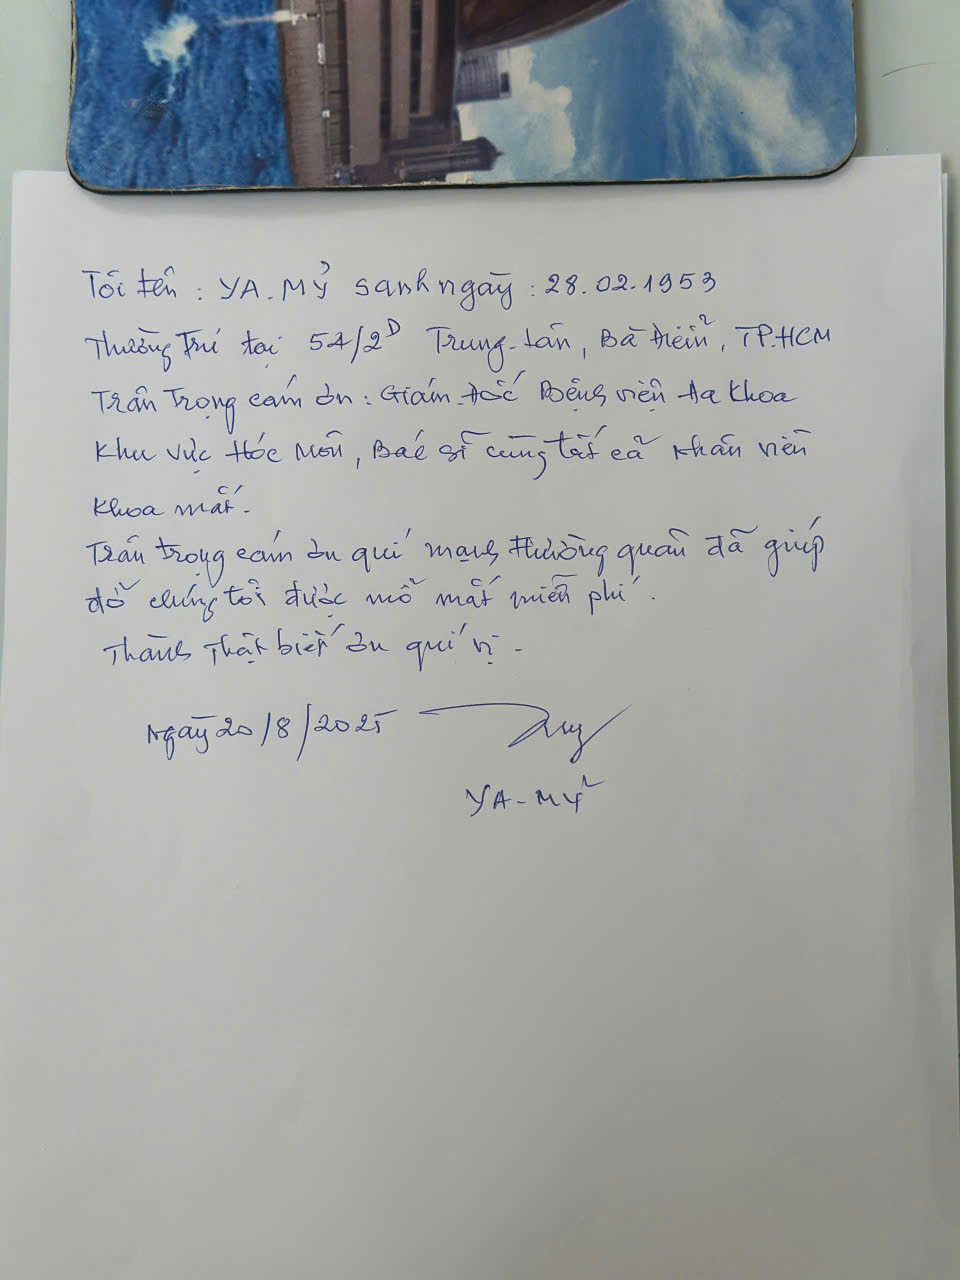 Tôi tên : YA-MỶ sanh ngày : 28.02.1953
Thường trú tại 54/2D Trung-Lân, Bà Điểm, TP.HCM
Trân Trọng cám ơn : Giám-Đốc Bệnh viện Đa Khoa
Khu vực Hóc Môn, Bác sĩ cùng tất cả nhân viên
Khoa mắt.
Trân trọng cám ơn quí mạnh thường quân đã giúp
đở chúng tôi được mổ mắt miễn phí.
Thành thật biết ơn quí vị.
Ngày 20/8/2025
YA-MỶ